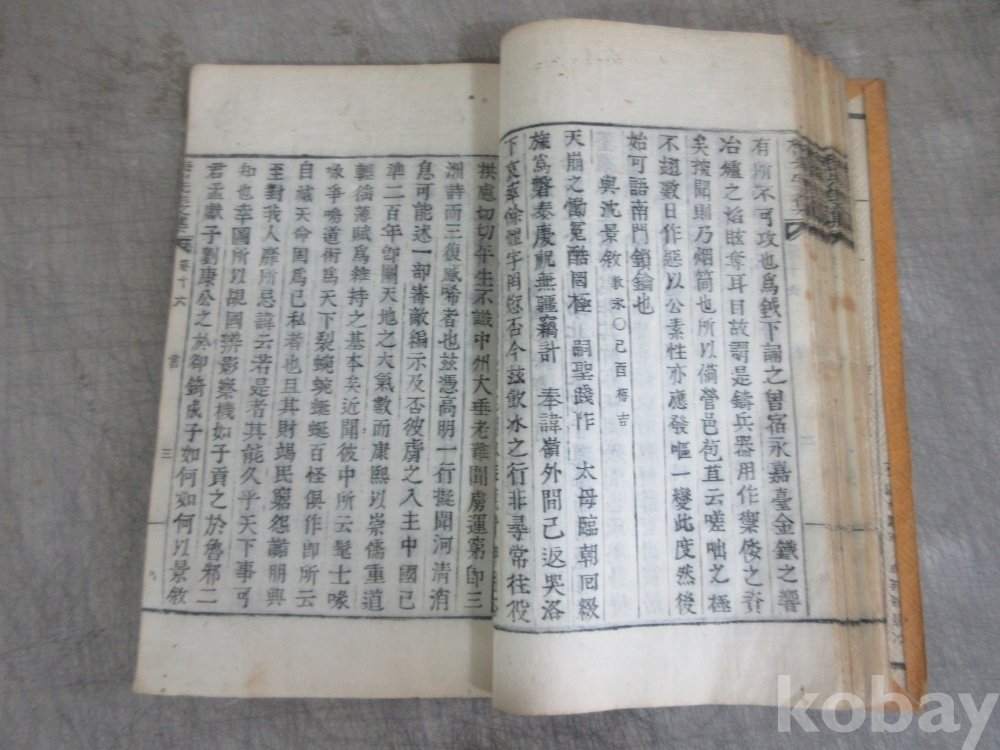 有所不可攻也爲鉞下誦之曾宿永嘉臺金鐵之響
冶爐之焰眩奪耳目故謂是鑄兵器用作禦倭之資
矣接聞則乃烟筒也所以備營邑苞苴云嗟咄之極
不翅數日作惡以公素性亦應發嘔一變此度然後
始可語南門鎖鑰也
與沈景敘 敦永○己酉梅吉
天崩之慟冤酷罔極 嗣聖踐作 太母臨朝回綴
旒爲磐泰慶祝無疆竊計 奉諱嶺外間已返哭洛
下哀 今玆飮冰之行非尋常往役
切切平生不識中州大垂老雖聞虜運窮即三
洲詩而三復感唏者也玆憑高明一行擬聞河淸消
息可能述一部審敵編示及否彼虜之入主中國已
準二百年即關天地之大氣數而康熙以崇儒重道
輕徭薄賦爲維持之基本矣近聞彼中所云髦士喙
喙爭鳴道術爲天下裂蜿蜿蜒蜒百怪俱作即所云
自滅天命因爲己私者也且其財竭民窮怨讟朋興
至對我人靡所忌諱云若是者其能久乎天下事可
知也幸國所以覘國辨影察機如子貢之於魯邾二
君孟獻子劉康公之於郤錡成子如何如何以景敘
卷十六
書
三
kobay